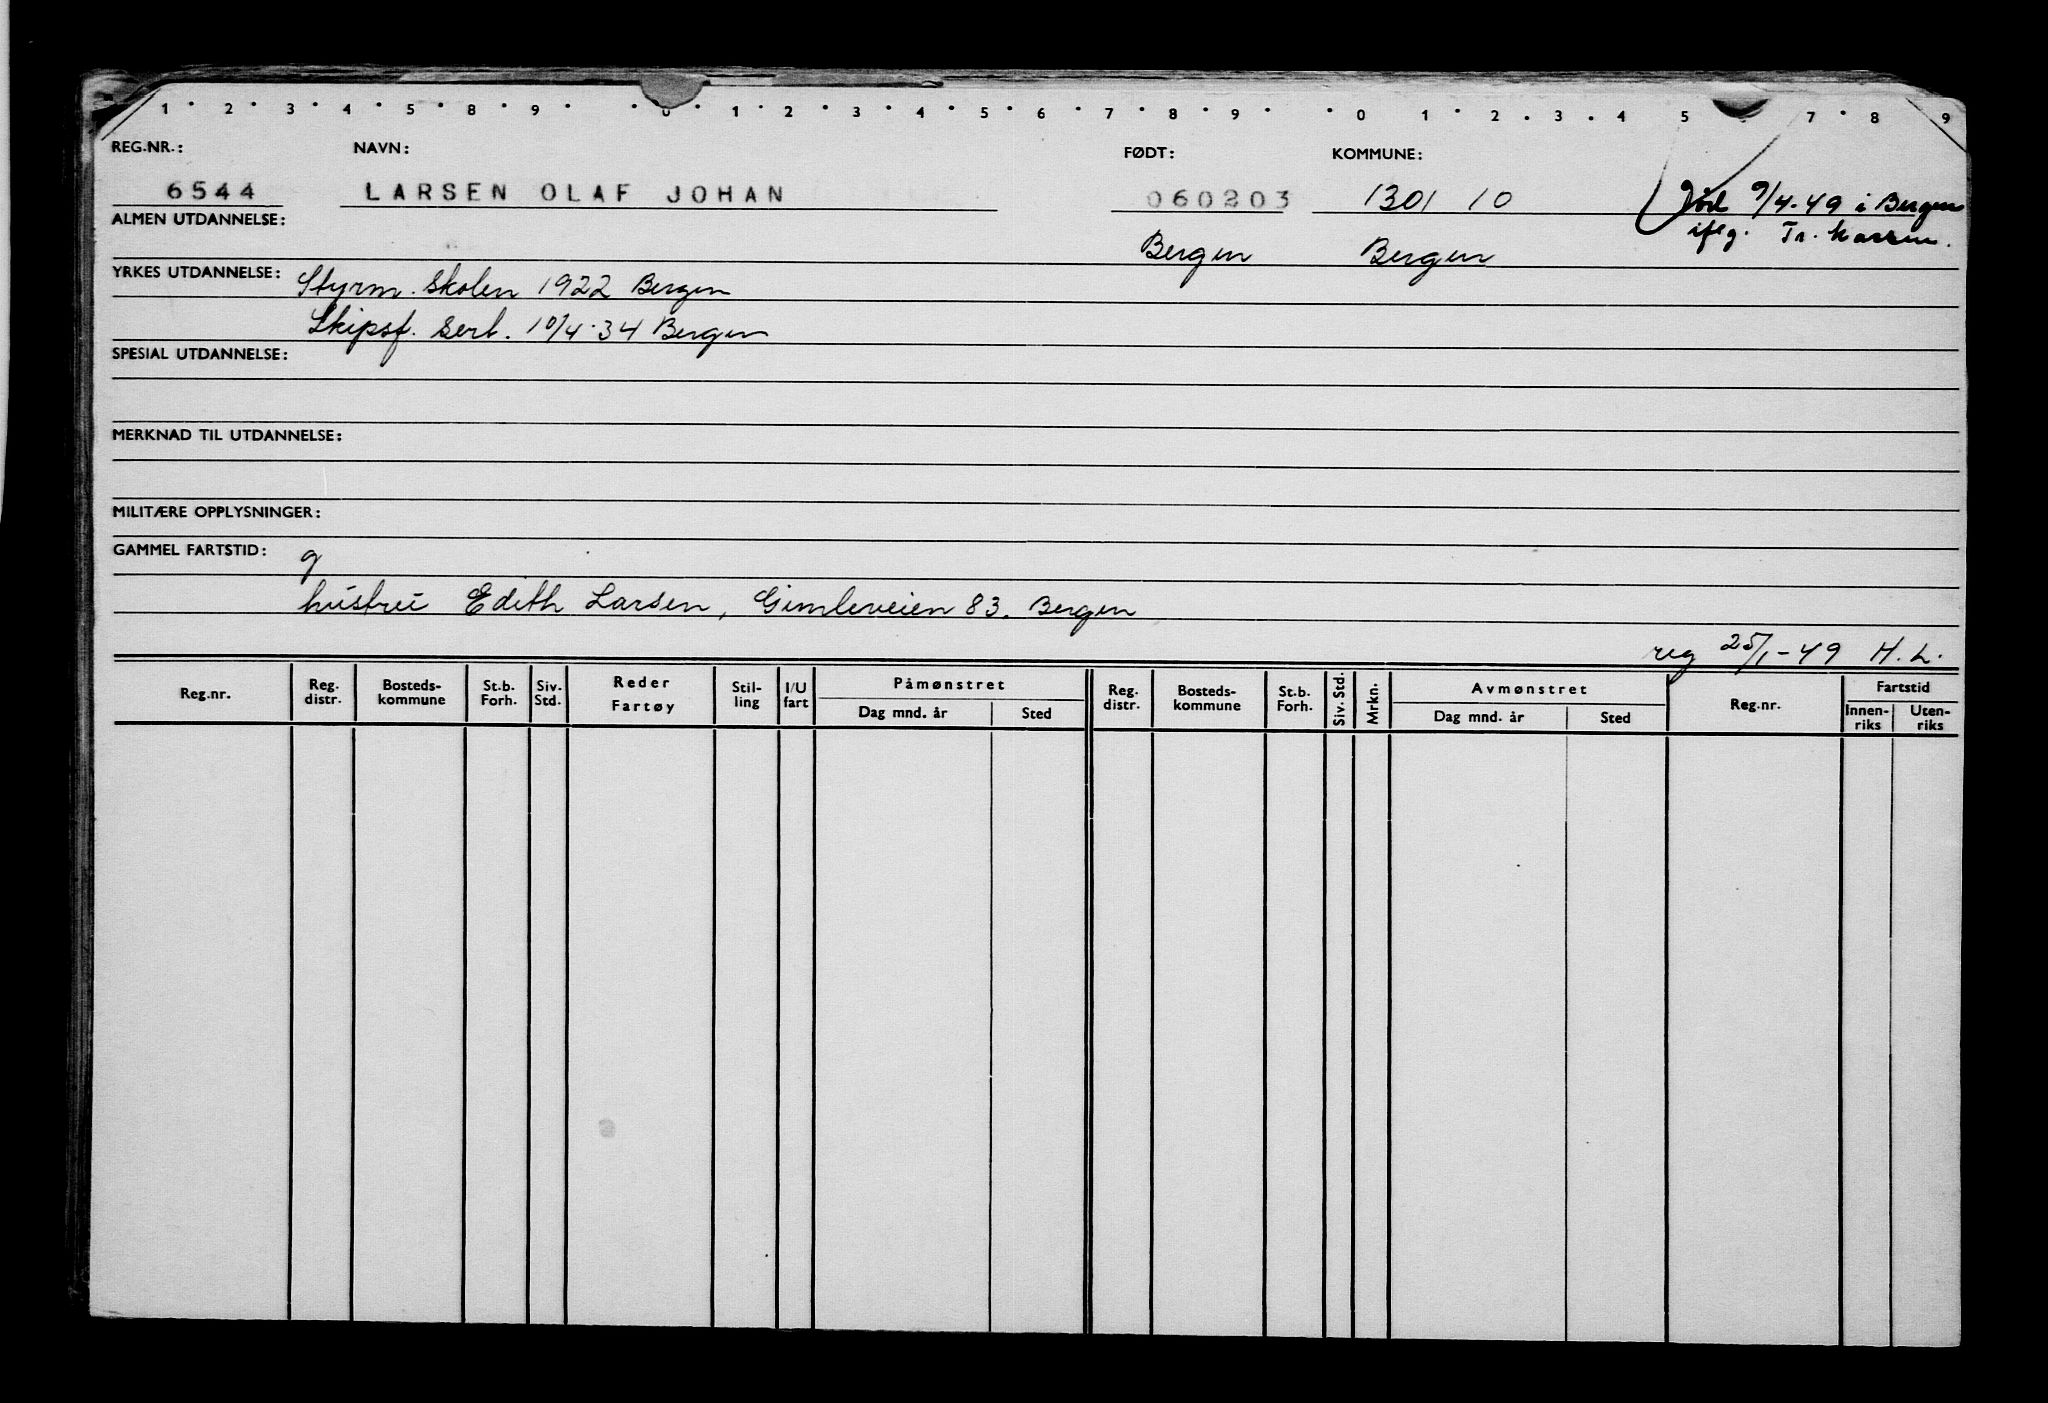 1 · 2 · 3 · 4 · 5 · 8 · 9 · · 0 · 1 · 2 · 3 · 4 · 5 · 6 · 7 · 8 · 9 · · 0 · 1 · 2 · 3 · 4 5 7 · 8 · 9
REG.NR.: NAVN: FØDT: KOMMUNE:
6544 LARSEN OLAF JOHAN 060203 1301 10 Død 9/4-49 i Bergen
ALMEN UTDANNELSE: Bergen Bergen iflg. Tr.
YRKES UTDANNELSE: Styrm. skolen 1922 Bergen
Skipsf. sert. 10/4-34 Bergen
SPESIAL UTDANNELSE:
MERKNAD TIL UTDANNELSE:
MILITÆRE OPPLYSNINGER:
GAMMEL FARTSTID: g
hustru Edith Larsen, Gimleveien 83. Bergen
reg 25/1-49 H.L.
Reg.nr. Reg. distr. Bosteds-kommune St.b. Forh. Siv. Std. Reder Fartøy Stil-ling I/U fart Påmønstret Dag mnd. år Sted Reg. distr. Bosteds-kommune St.b. Forh. Siv. Std. Mrkn. Avmønstret Dag mnd. år Sted Reg.nr. Fartstid Innen-riks Uten-riks